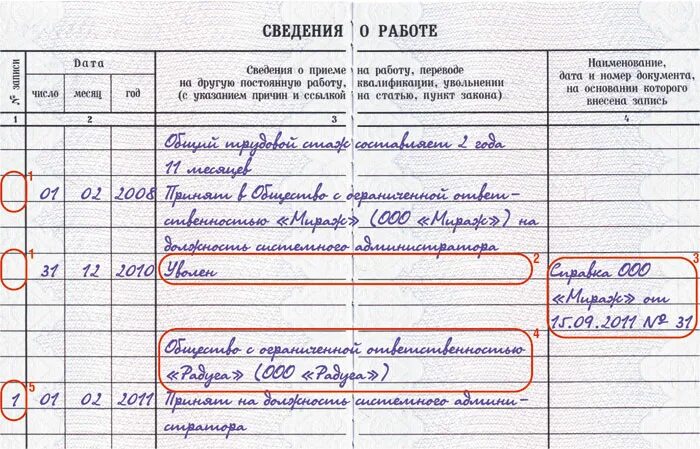 СВЕДЕНИЯ О РАБОТЕ
№ записи
Дата
число
месяц
год
Сведения о приеме на работу, переводе
на другую постоянную работу, квалификации, увольнении
(с указанием причин и ссылкой на статью, пункт закона)
Наименование,
дата и номер документа,
на основании которого
внесена запись
1 2 3 4
Общий трудовой стаж составляет 2 года
11 месяцев
1
01 02 2008 Принят в Общество с ограниченной ответ-
ственностью «Мираж» (ООО «Мираж») на
должность системного администратора
1 2 3
31 12 2010 Уволен Справка ООО
«Мираж» от
15.09.2011 № 31
4
Общество с ограниченной ответственностью
«Радуга» (ООО «Радуга»)
5
1 01 02 2011 Принят на должность системного админи-
стратора